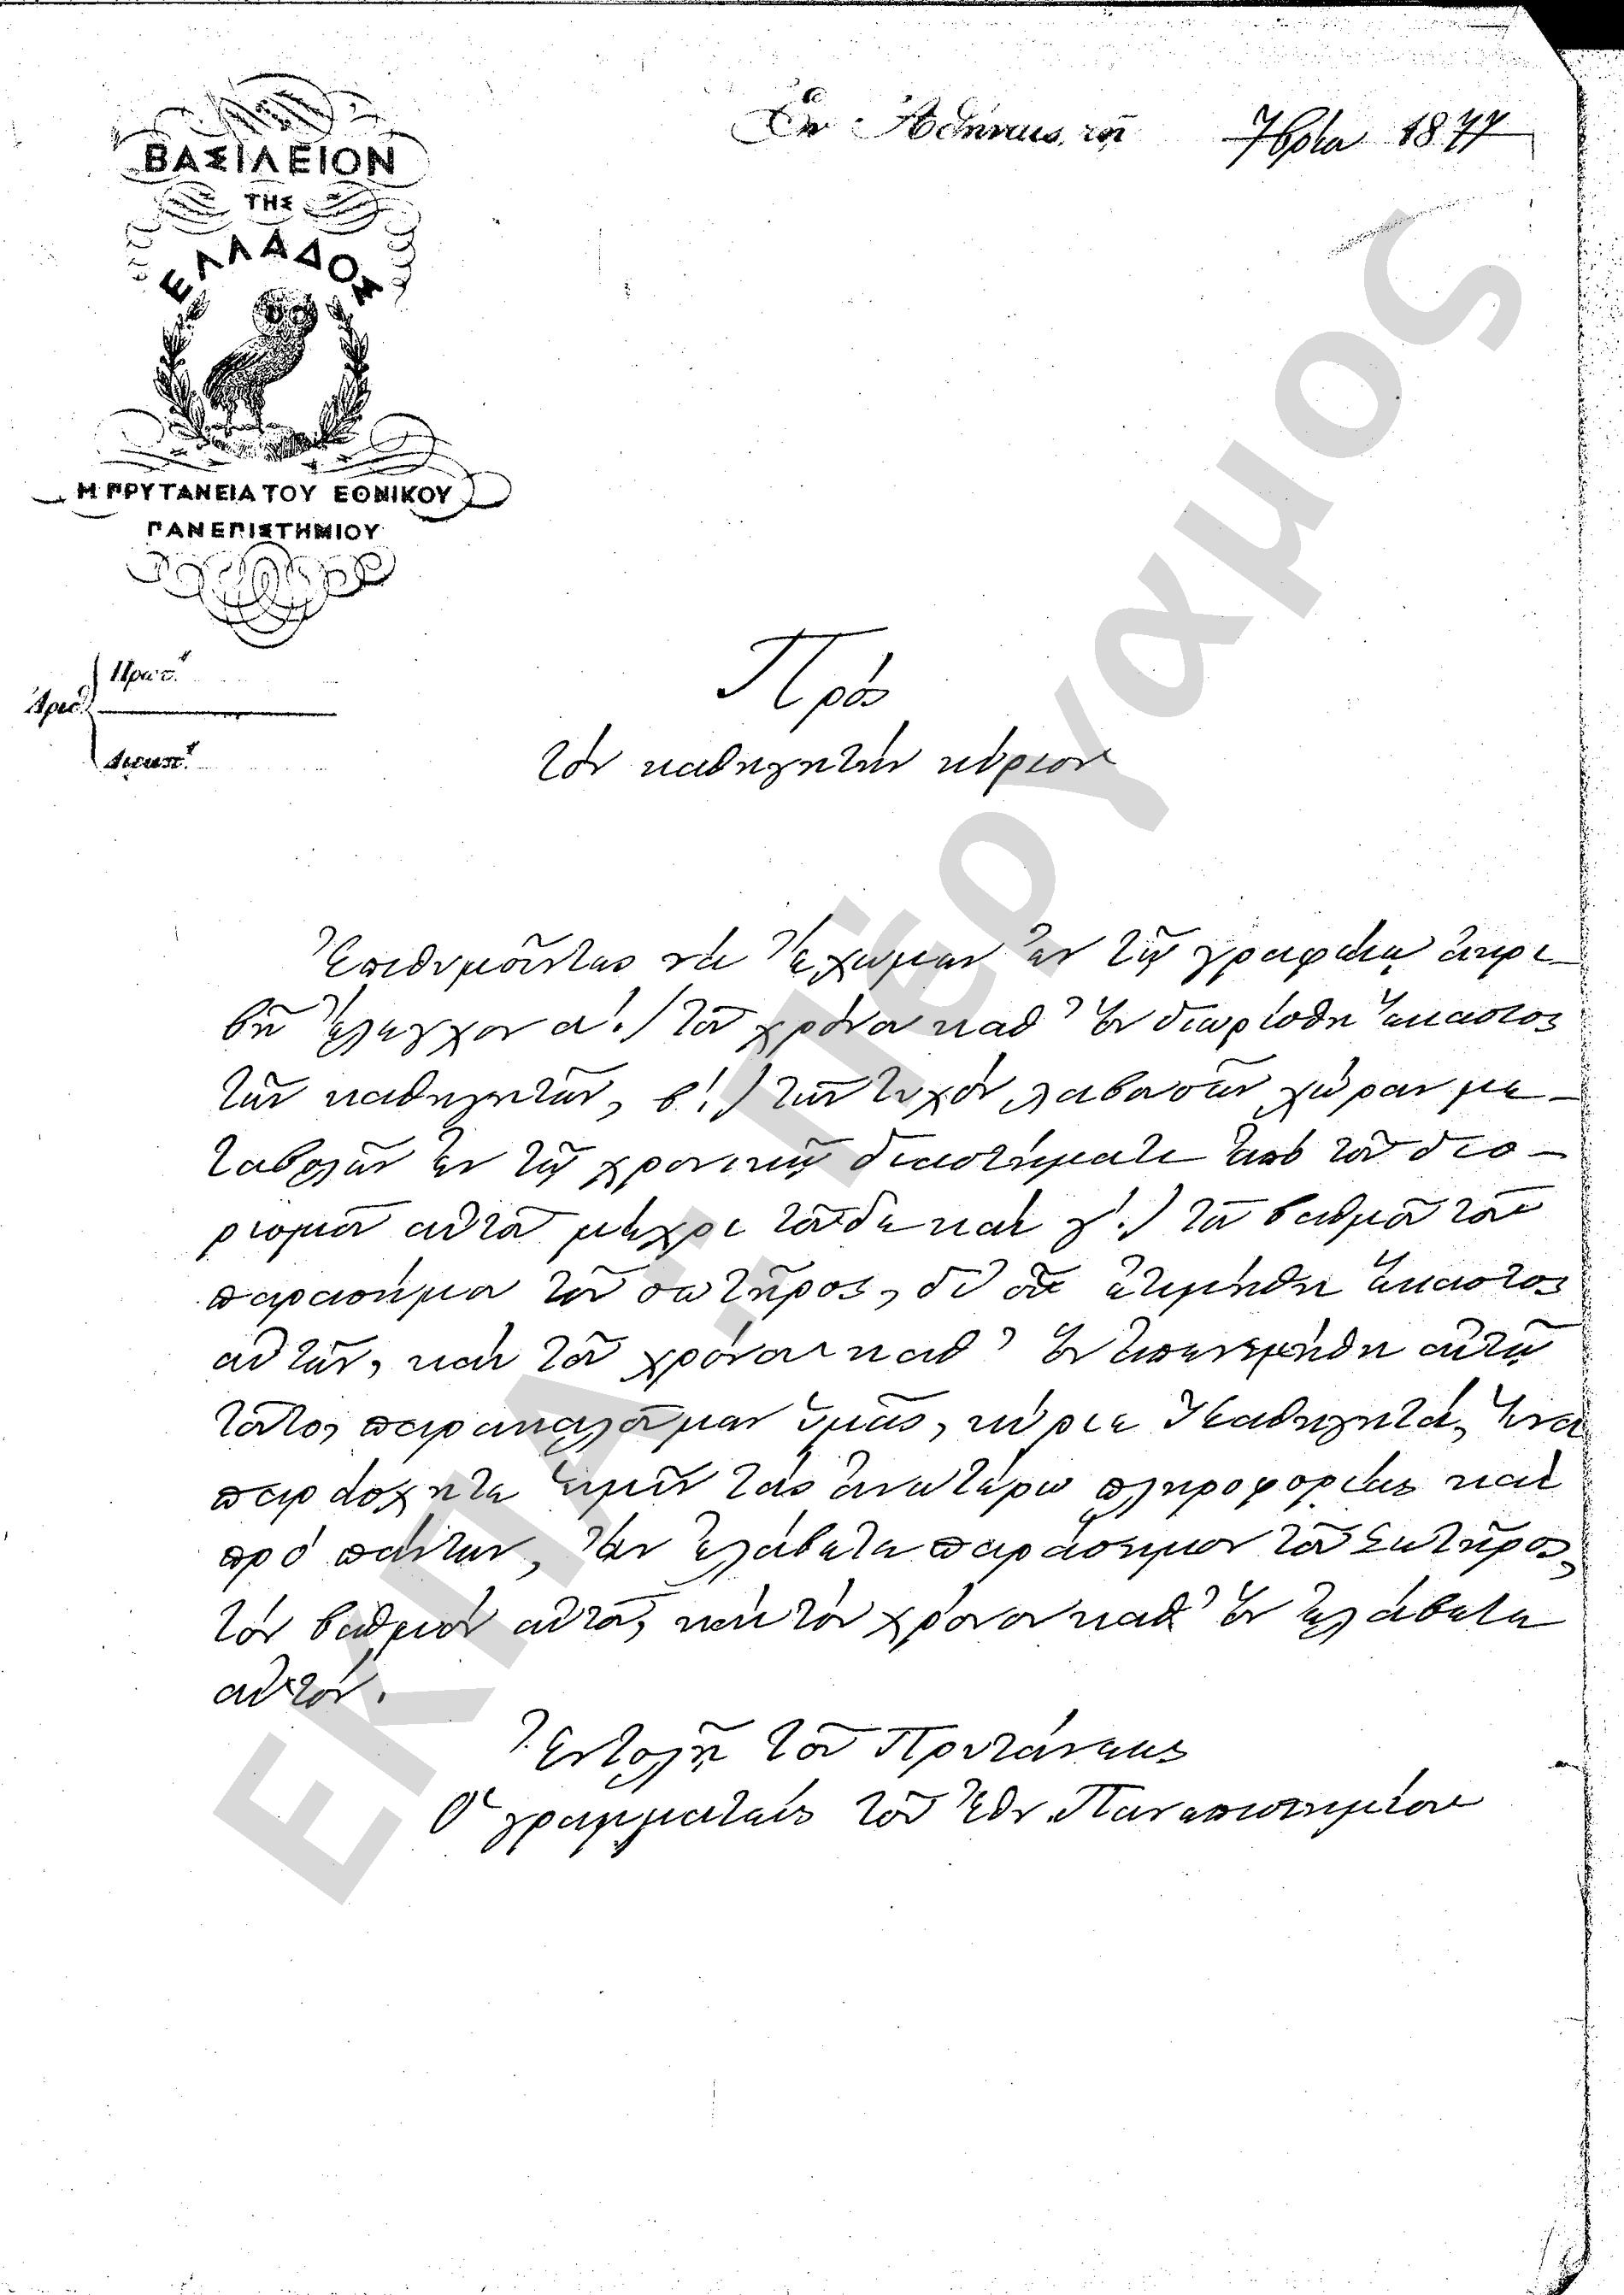 ΒΑΣΙΛΕΙΟΝ
ΤΗΣ
ΕΛΛΑΔΟΣ
Η ΠΡΥΤΑΝΕΙΑ ΤΟΥ ΕΘΝΙΚΟΥ
ΠΑΝΕΠΙΣΤΗΜΙΟΥ
Ἐν Ἀθήναις τῇ 7βρίου 1877
Ἀριθ.
Πρωτ.
Διεκπ.
Πρὸς
τὸν καθηγητὴν κύριον
Ἐπιθυμοῦντες νὰ ἔχωμεν ἐν τῷ γραφείῳ ἀκρι-
βῆ ἔλεγχον α΄.) τοῦ χρόνου καθ' ὃν διωρίσθη ἕκαστος
τῶν καθηγητῶν, β΄.) τῶν τυχὸν λαβουσῶν χώραν με-
ταβολῶν ἐν τῷ χρονικῷ διαστήματι ἀπὸ τοῦ διο-
ρισμοῦ αὐτοῦ μέχρι τοῦδε καὶ γ΄.) τοῦ βαθμοῦ τοῦ
παρασήμου τοῦ σωτῆρος, δι' οὗ ἐτιμήθη ἕκαστος
αὐτῶν, καὶ τοῦ χρόνου καθ' ὃν ἀπενεμήθη αὐτῷ
τοῦτο, παρακαλοῦμεν ὑμᾶς, κύριε Καθηγητά, ἵνα
παράσχητε ἡμῖν τὰς ἀνωτέρω πληροφορίας καὶ
πρὸ πάντων, ἂν ἐλάβετε παράσημον τοῦ Σωτῆρος,
τὸν βαθμὸν αὐτοῦ, καὶ τὸν χρόνον καθ' ὃν ἐλάβετε
αὐτόν.
Ἐντολῇ τοῦ Πρυτάνεως
Ὁ γραμματεὺς τοῦ Ἐθν. Πανεπιστημίου
ΕΚΠΑ.: Πέργαμος